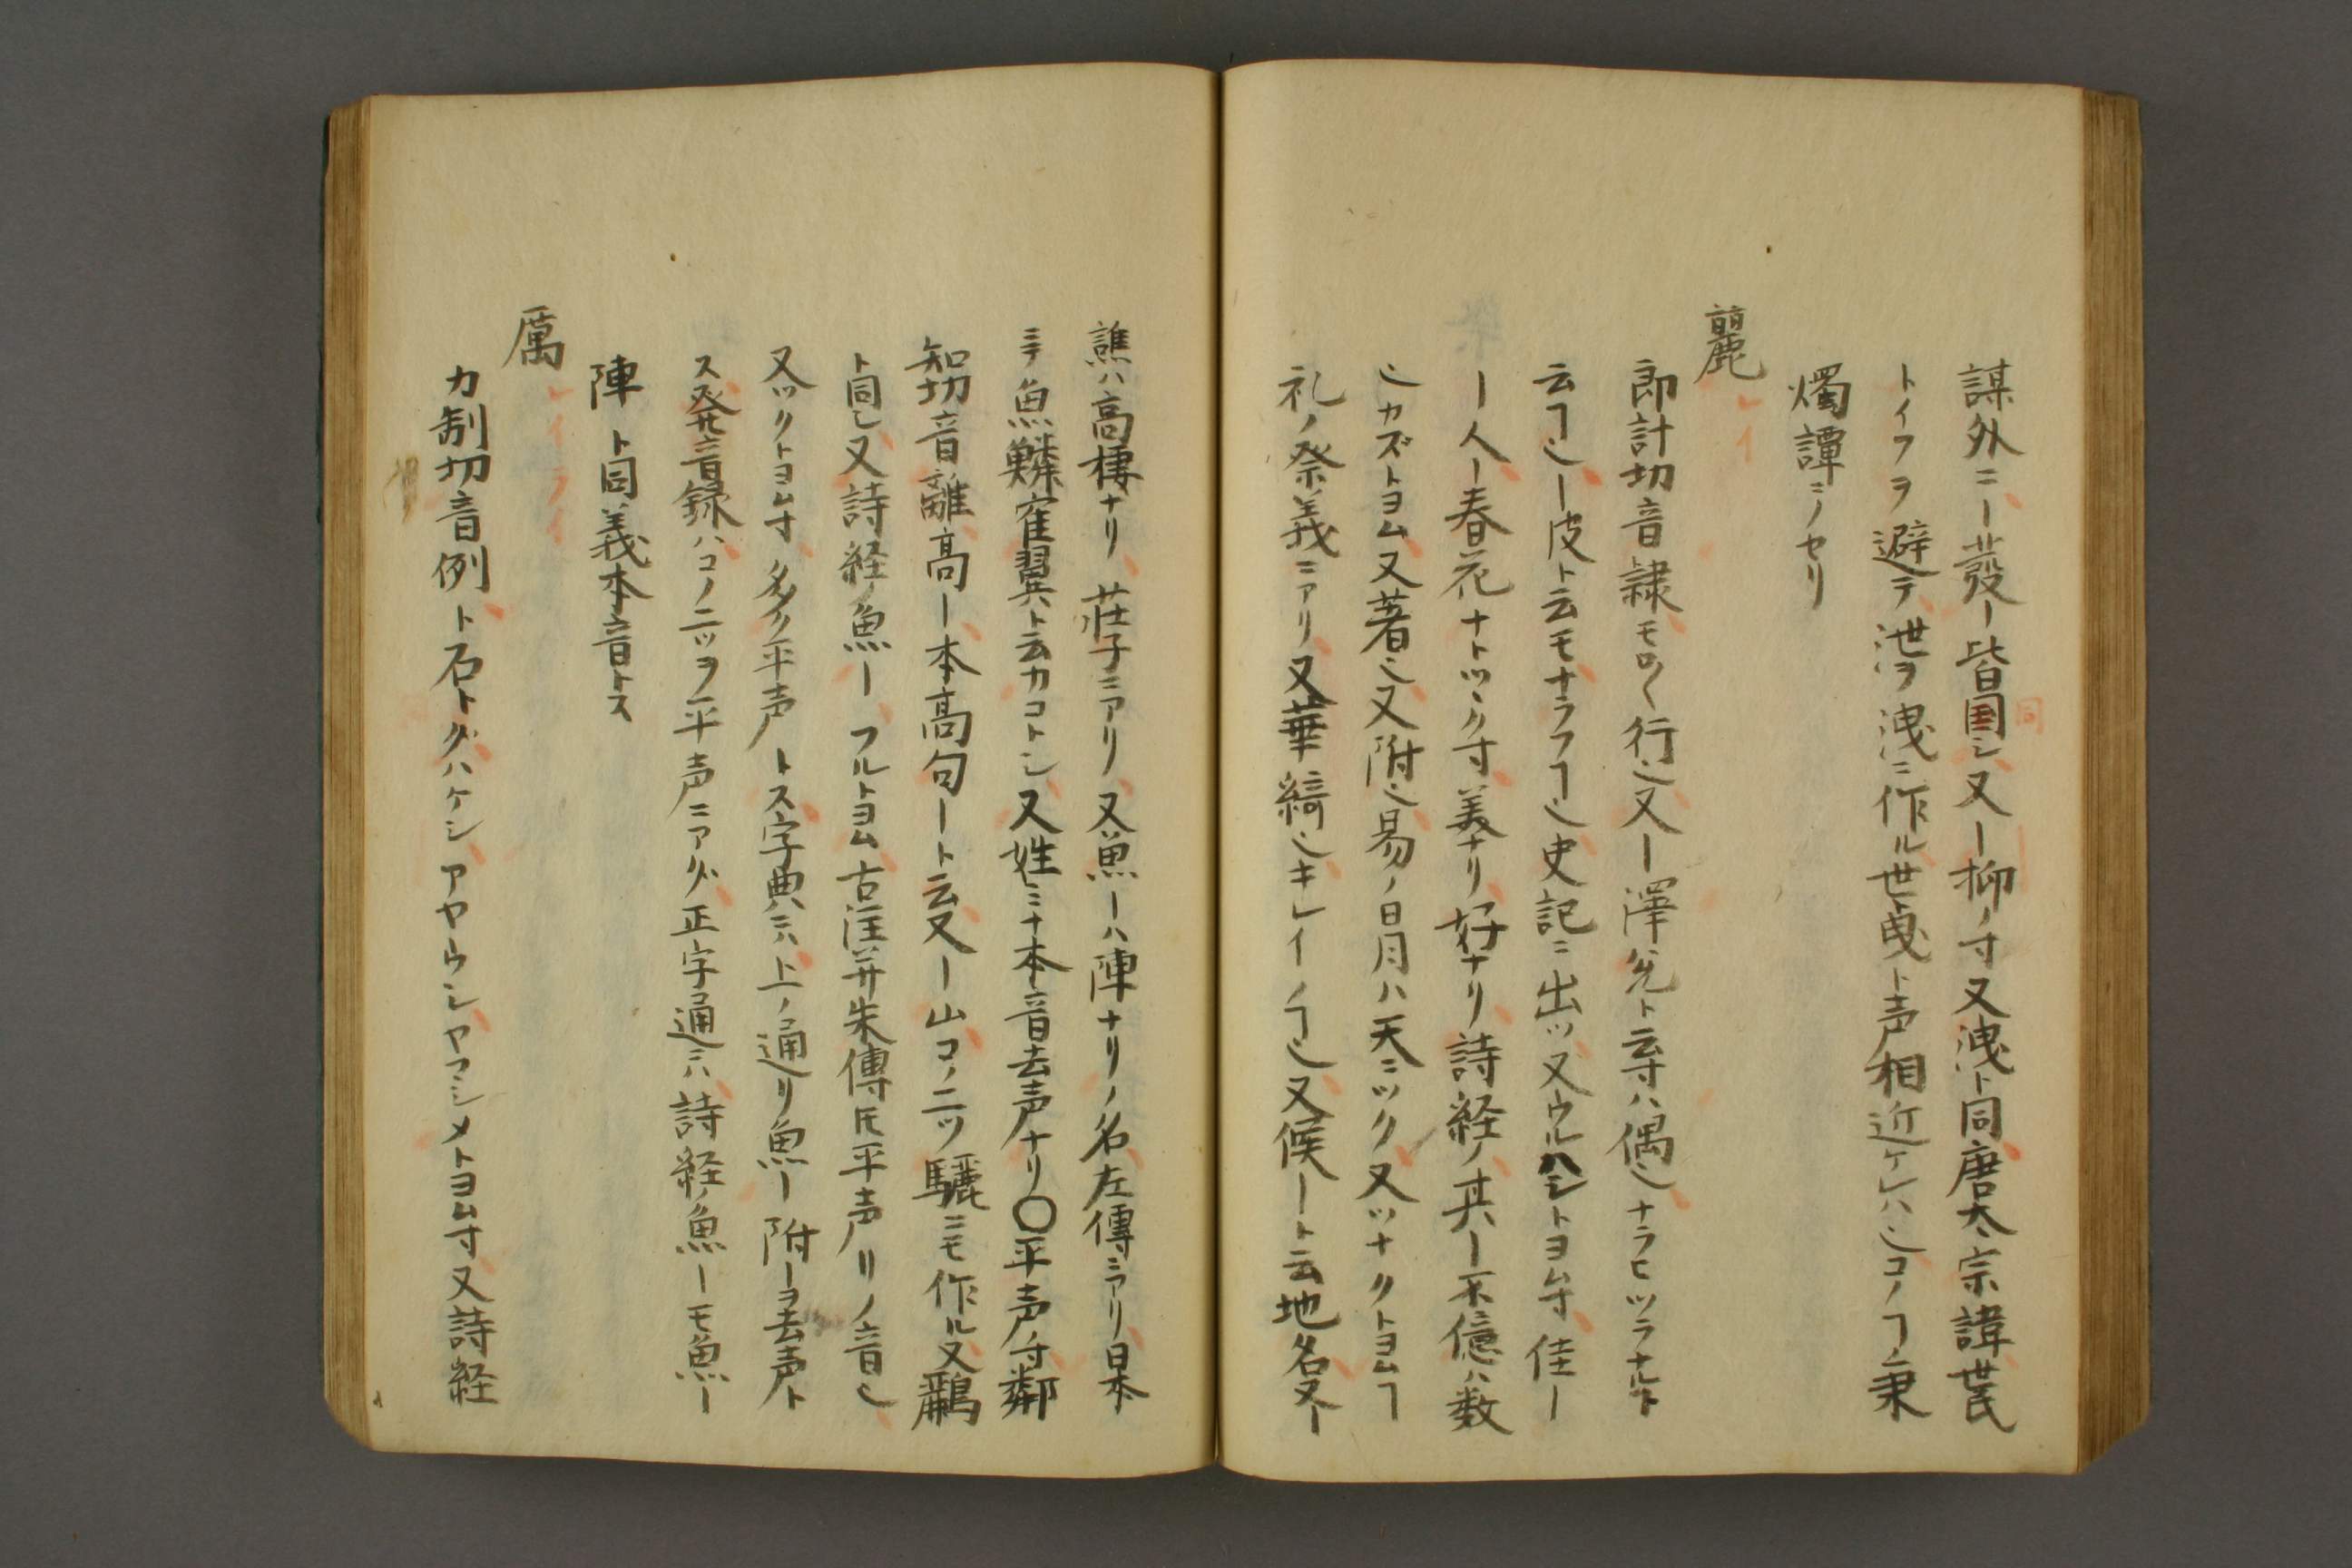 謀外ニ｜發｜皆国シ又｜抑ノ寸又洩ト同唐太宗諱世民
同
トイフヲ避テ泄ヲ洩ニ作ル世曳ト声相近ケレハ也コノヿ秉
燭譚ニノセリ
麗
レイ
郎計切音隷モロ〱行也又｜澤兌ト云寸ハ偶也ナラヒツラナルト
云ヿ也｜皮ト云モナラフヿ也史記ニ出ツ又ウルハシトヨム寸佳｜
｜人｜春花ナトツヽク寸美ナリ好ナリ詩経ノ其｜不億ハ数
也カズトヨム又著也又附也易ノ日月ハ天ニツク又ツナクトヨムヿ
礼ノ祭義ニアリ又華綺也キレイノヿ也又候｜ト云地名又｜
譙ハ高樓ナリ荘子ニアリ又魚｜ハ陣ナリノ名左傳ニアリ日本
ニテ魚鱗隺翼ト云カコトシ又姓ミナ本音去声ナリ〇平声ノ寸鄰
知切音離高｜本高句｜ト云又｜山コノ二ツ驪ニモ作ル又鸝
ト同シ又詩経ノ魚｜フルトヨム古注并朱傳氏平声リノ音也
又ツクトヨム寸多ク平声トス字典ニハ上ノ通リ魚｜附｜ヲ去声ト
ス発音録ハコノ二ツヲ平声ニアク正字通ニハ詩経ノ魚｜モ魚｜
陣ト同義本音トス
厲
レイライ
力制切音例ト石トグハケシアヤウシヤマシメトヨム寸又詩経